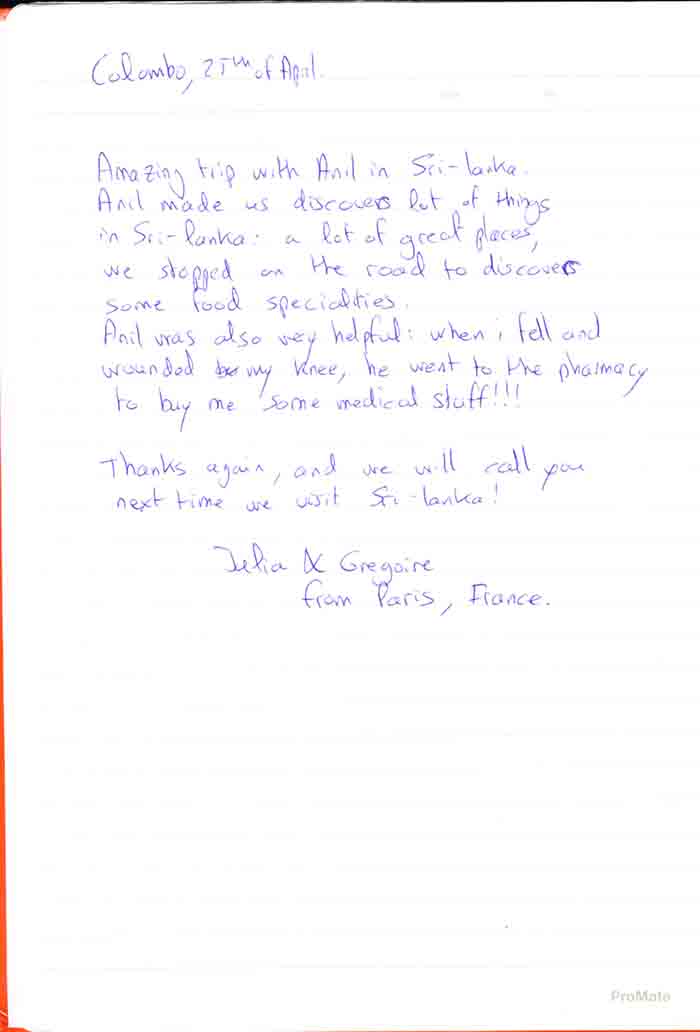 Colombo, 25th of April.
Amazing trip with Anil in Sri-lanka.
Anil made us discovers lot of things
in Sri-lanka: a lot of great places,
we stopped on the road to discovers
some food specialties.
Anil was also very helpful: when i fell and
wounded my knee, he went to the pharmacy
to buy me some medical stuff!!!
Thanks again, and we will call you
next time we visit Sri-lanka!
Julia & Gregoire
from Paris, France.
ProMate